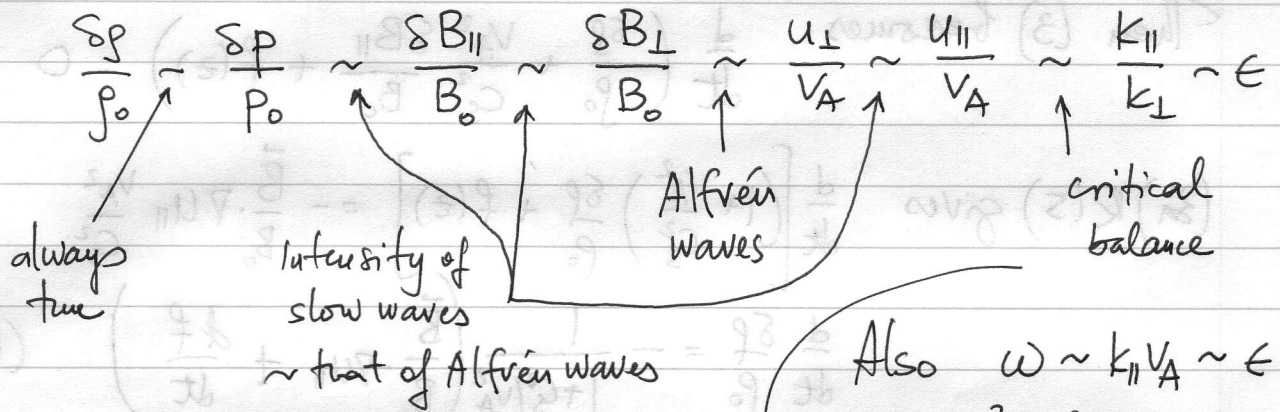 δρ/ρ₀ ~ δp/p₀ ~ δB∥/B₀ ~ δB⊥/B₀ ~ u⊥/V_A ~ u∥/V_A ~ k∥/k⊥ ~ ϵ
always true
Intensity of
slow waves
~ that of Alfvén waves
Alfvén
waves
critical
balance
Also ω ~ k∥V_A ~ ϵ